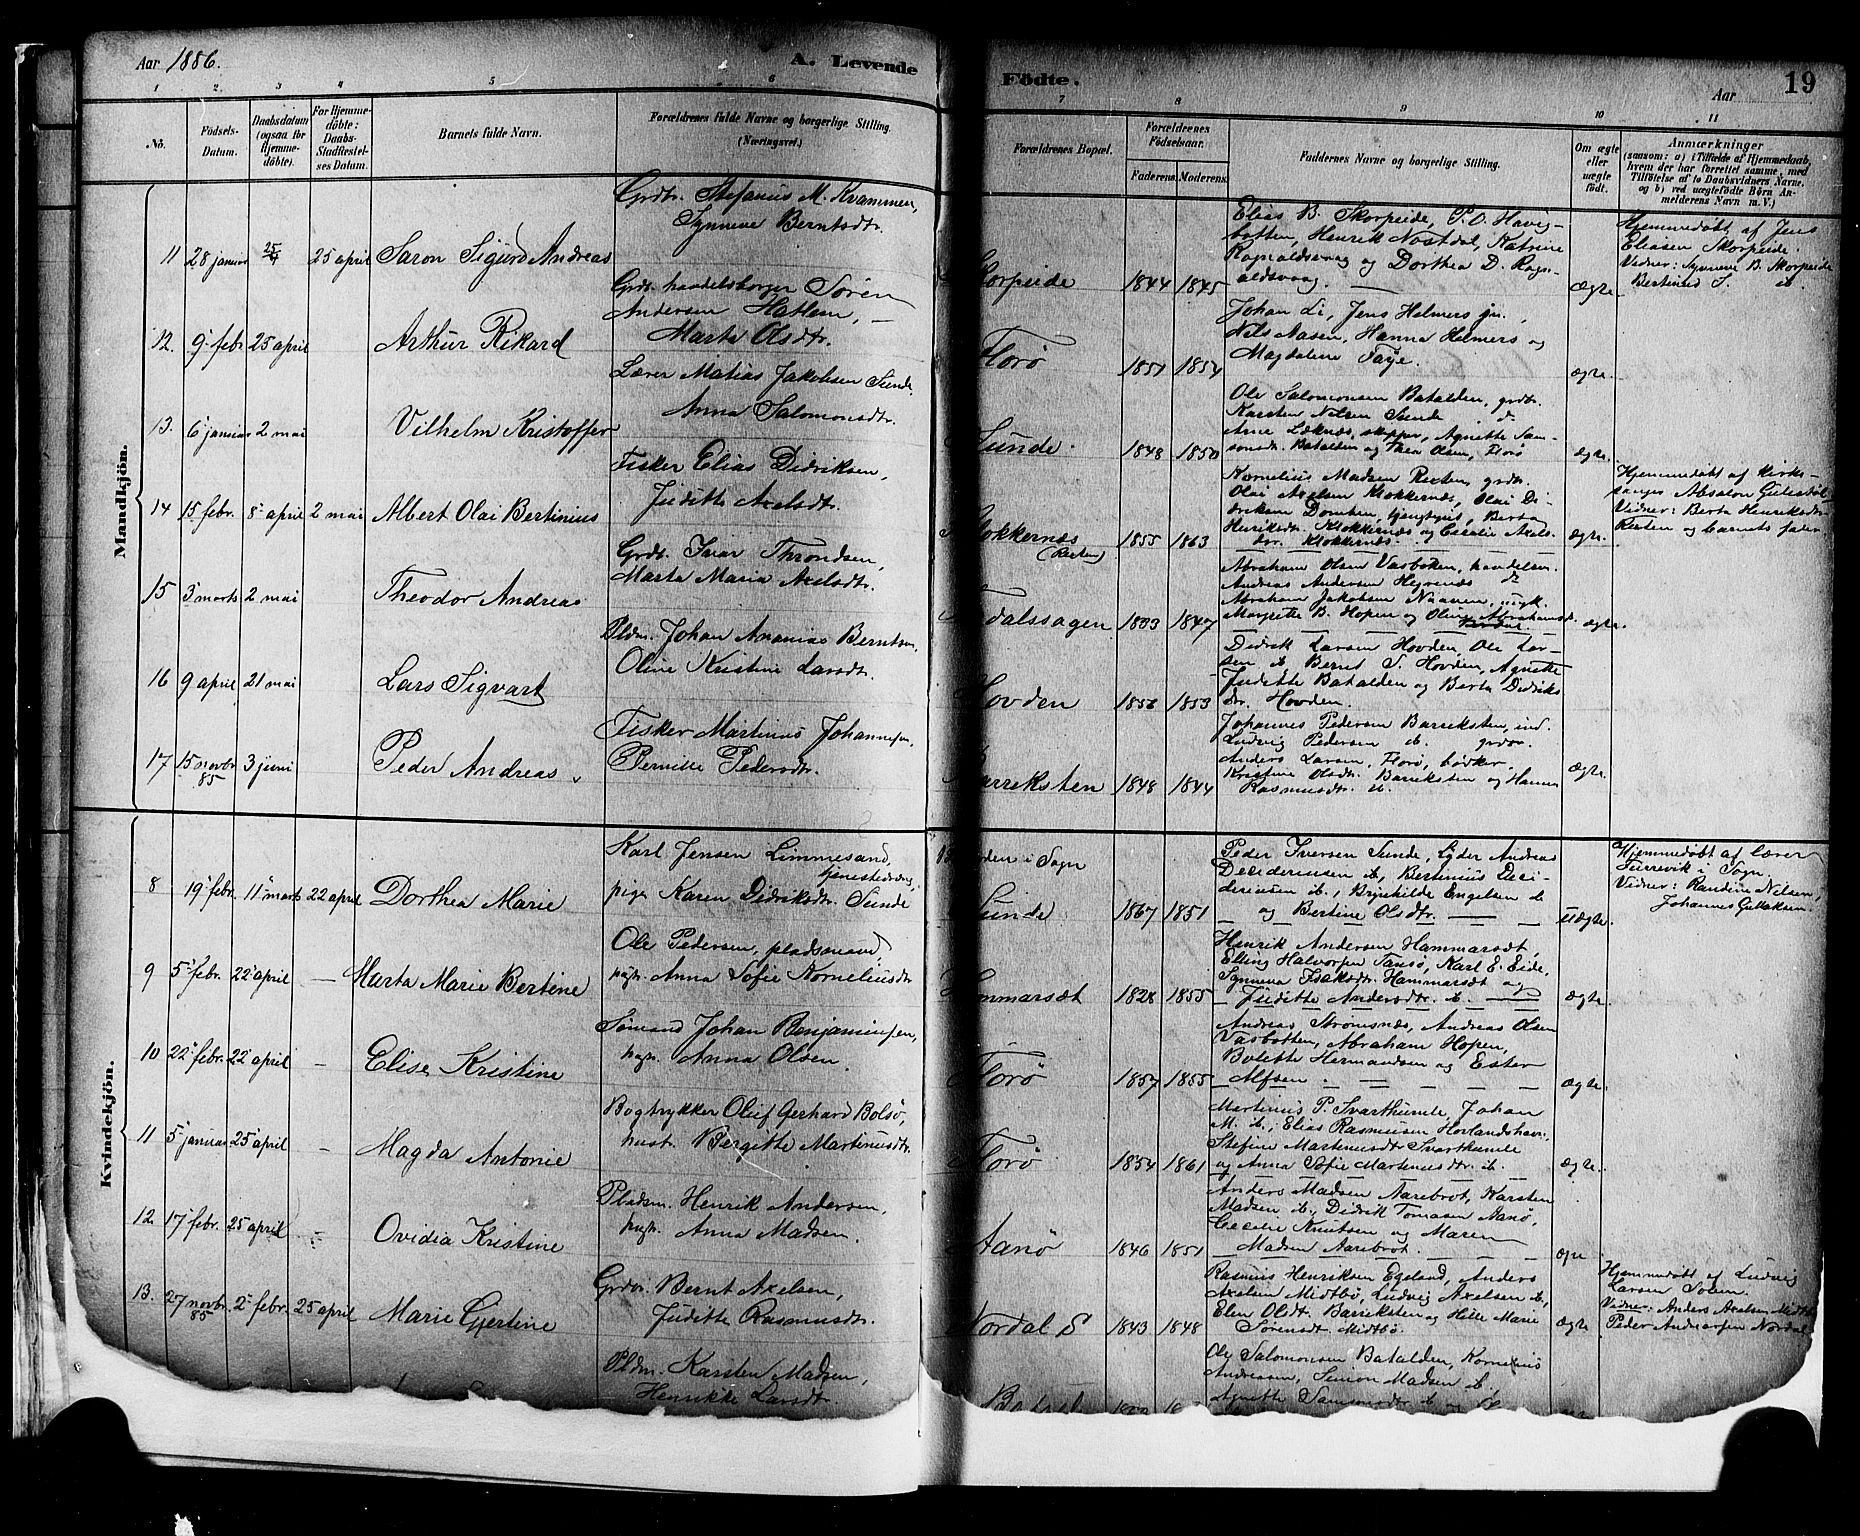 Aar 1886.
A. Levende
Födte.
Aar
19
1 2 3 4 5 6 7 8 9 10 11
No.
Födsels-Datum.
Daabsdatum (ogsaa for Hjemme-döbte).
For Hjemme-döbte: Daabs-Stadfæstel-ses Datum.
Barnets fulde Navn.
Forældrenes fulde Navne og borgerlige Stilling. (Næringsvei.)
Forældrenes Bopæl.
Forældrenes Födselsaar.
Faderens.
Moderens.
Faddernes Navne og borgerlige Stilling.
Om ægte eller uægte födt.
Anmærkninger
(saasom: a) i Tilfælde af Hjemmedaab,
hvem der har forrettet samme, med
Tilföielse af to Daabsvidners Navne,
og b) ved uægtefödte Börn An-
melderens Navn m. V.)
Mandkjön.
11 28 januar 25/4 25 april Saron Sigurd Andreas
Grdr. Stefanus M. Kvammen,
Synneve Berntsdtr.
Skorpeide 1844 1845
Elias B. Skorpeide, P. O. Havig-
botten, Henrik Nostdal, Katrine
Rognaldsvaag og Dorthea D. Rogn-
aldsvaag.
Ægte
Hjemmedøbt af Jens
Eliasen Skorpeide.
Vidner: Synneve B. Skorpeide
Bertinus S. ib.
12. 9 febr. 25 april Arthur Rikard
Grdr. handelsborger Sören
Andersen Hatlem,
Marta Olsdtr.
Florø 1851 1854
Johan Li, Jens Helmers jn.,
Nils Aasen, Hanna Helmers og
Magdalene Faye.
ægte.
13. 6 januar 2 mai Vilhelm Kristoffer
Lærer Matias Jakobsen Sunde,
Anna Salomonsdtr.
Sunde. 1848 1850
Ole Salomonsen Batalden, grdbr.
Karsten Nilsen Sunde d
Arne Læknes, skipper, Agnette Sam-
sonsdtr. Batalden og Thea Olsen, Florø
ægte.
14 15 febr. 8 april 2 mai Albert Olai Bertinius
Fisker Elias Didriksen,
Juditte Axelsdtr.
Klokkernæs (Reksten) 1855 1863
Kornelius Madsen Rexten, grdbr.
Olai Axelsen Klokkernæs, Olai Di-
driksen Domben, tjengtgut, Berta
Henriksdtr. Klokkernæs og Cecelie Axels-
dtr. Klokkernæs.
ægte.
Hjemmedøbt af kirke-
sanger Absalon Gulestøl
Vidner: Berta Henriksdtr.
Rexten og barnets fader
15 3 marts 2 mai Theodor Andreas
Grdr. Ivar Throndsen,
Marta Maria Axelsdtr.
1833 1847
Abraham Olsen Vasboten, handelsm.
Andreas Andersen Hegrenæs d
Abraham Jakobsen Naaven, ungk.
Margrette B. Hopen og Oline Abrahamsd.
ægte.
16 9 april 21 mai Lars Sigvart
Pldm. Johan Ananias Berntsen,
Oline Kristine Larsdtr.
Hovden 1856 1853
Didrik Larsen Hovden, Ole Lar-
sen ib. Bernt S. Hovden, Agnette
Juditte Batalden og Berta Didriks-
dtr. Hovden.
17 15 novbr. 85 3 juni Peder Andreas
Fisker Martinus Johannesen,
Pernille Pedersdtr.
Barreksten 1848 1844
Johannes Pedersen Barreksten, ind.
Ludvig Pedersen ib. grdbr.
Anders Larsen, Florø, bødker
Kristine Olsdtr. Barreksten og Hanna
Rasmusdtr. ib.
Ægte.
Kvindekjön.
8 19 febr. 11 marts 22 april Dorthea Marie
Karl Jensen Limmesand, tjenestedreng,
pige Karen Didriksdtr. Sunde
i Sogn
Sunde 1867 1851
Peder Iversen Sunde, Eyder Andreas
Desideriussen ib., Bertinius Deci-
deriusen ib., Brynhilde Engelsen ib
og Bertine Olsdtr.
Uægte.
Hjemmedøbt af lærer
i Sogn
Vidner: Randine Nilsen,
Johannes Gullaksen.
9 5 febr. 22 april — Marta Marie Bertine
Ole Pedersen, pladsmand,
hustr. Anna Sofie Korneliusdtr.
Hammarsæt 1828 1855
Henrik Andersen Hammarsæt,
Elling Halvorsen Tansø, Karl E. Eide,
Synneva Isaksdtr. Hammarsæt og
Juditte Andersdtr. ib.
ægte.
10 22 febr. 22 april — Elise Kristine
Sømand Johan Benjaminsen,
hustr. Anna Olsen.
Florø 1857 1855
Andreas Strømsnæs, Andreas Olsen
Vasbotten, Abraham Hopen,
Bolette Hermandsen og Ester
Alfsen.
ægte.
11 5 januar 25 april — Magda Antonie
Bogtrykker Oluf Gerhard Bolsø,
hust. Bergitte Martinusdtr.
Florø 1854 1861
Martinus P. Svarthumle, Johan
M. ib., Elias Rasmussen Hovlandshavn,
Stefine Martinusdtr Svarthumle
og Anna Sofie Martinusdtr. ib.
ægte.
12 17 febr. 25 april — Ovidia Kristine
Pladsm. Henrik Andersen,
hustr. Anna Madsen.
Aanø 1846 1851
Anders Madsen Aarebrot, Karsten
Madsen ib., Didrik Tomasen Aanø,
Cecelie Knutsen og Maren
Madsen Aarebrot.
ægte
13. 27 novbr. 85 2 febr. 25 april Marie Gjertine
Grdbr. Bernt Axelsen,
Juditte Rasmusdtr.
Nordal S 1843 1848
Rasmus Henriksen Egeland, Anders
Axelsen Midtbø, Ludvig Axelsen ib,
Elen Olsdtr. Barreksten og Hille Marie
Sørensdtr. Midtbø.
ægte
Hjemmedøbt af Ludvig
Larsen Solem.
Vidner: Anders Axelsen Midtbø
Peder Andreassen Nordal.
Pldm. Karsten Madsen,
Henrikke Larsdtr.
Ole Salomonsen Batalden, Kornelius
Andreasen, Simon Madsen ib.
Agnette Samsonsdtr ib og